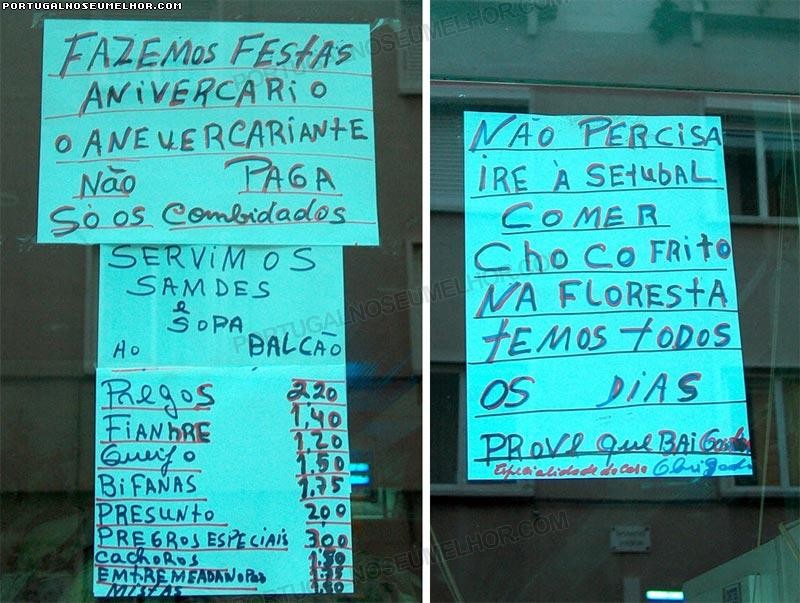 PORTUGALNOSEUMELHOR.COM
FAZEMOS FESTAS
ANIVERCARIO
O ANEVERCARIANTE
NÃO PAGA
SÓ OS COMBIDADOS
SERVIMOS
SAMDES
e
SOPA
AO BALCÃO
PREGOS 2,20
FIANBRE 1,40
QUEIJO 1,20
1,50
BIFANAS 1,75
PRESUNTO 2,00
PREGROS ESPECIAIS 3,00
CACHOROS 1,50
EMTREMEADANOPÃO
MISTAS 1,50
NÃO PERCISA
IRE À SETUBAL
COMER
CHOCO FRITO
NA FLORESTA
TEMOS TODOS
OS DIAS
PROVE QUE BAI
Especialidade da casa Obrigado
PORTUGALNOSEUMELHOR.COM